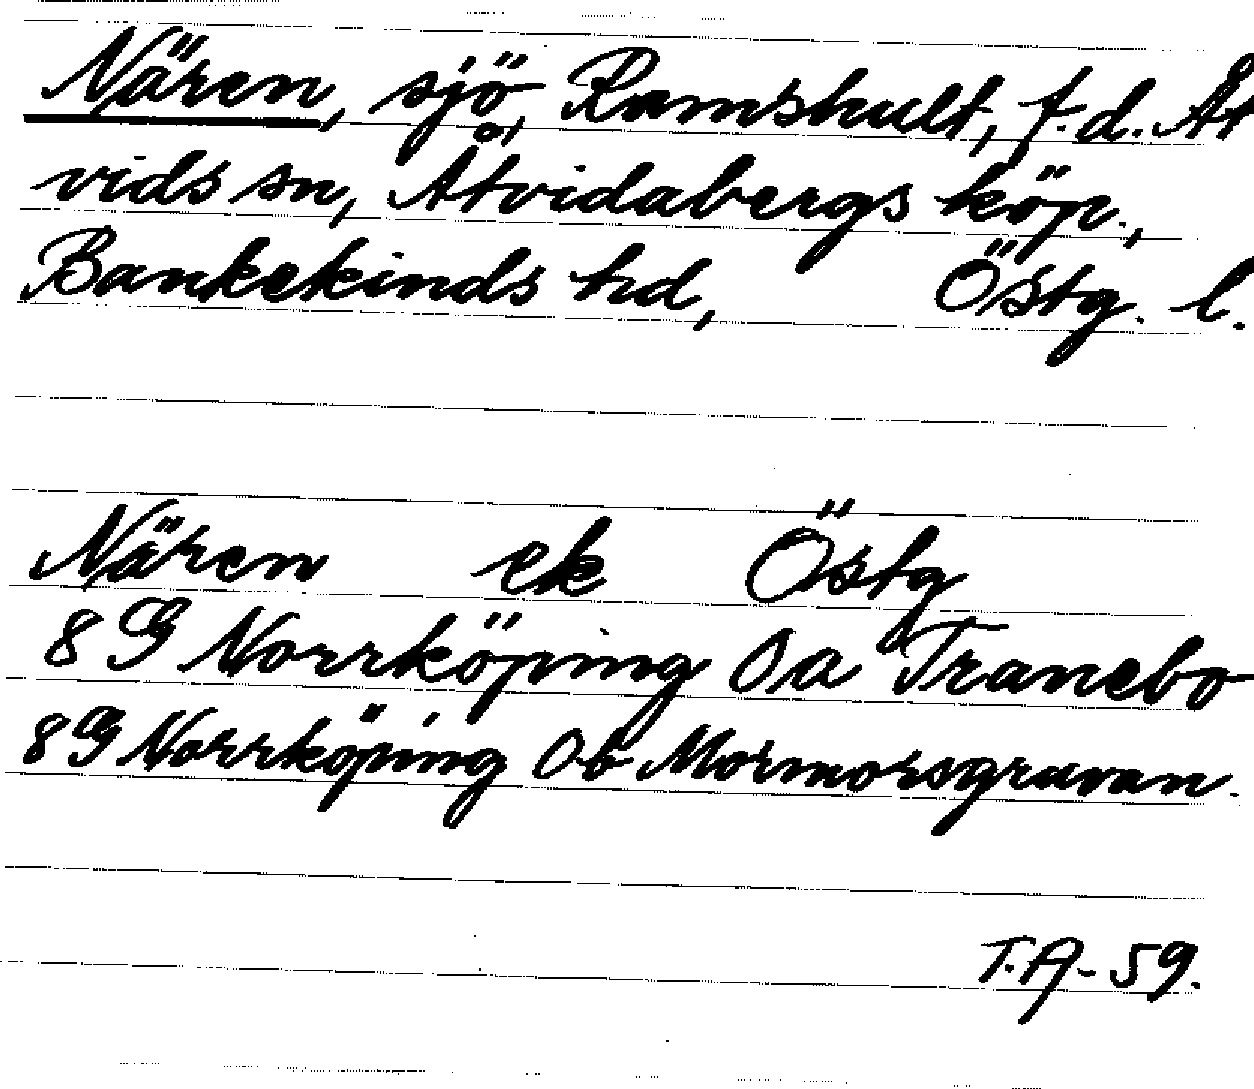 Nären, sjö, Ramshult, f.d. Åt
vids sn, Åtvidabergs köp.,
Bankekinds hd, Östg. l.
Nären ek Östg
8G Norrköping 0a Tranebo
8G Norrköping 0b Mormorsgruvan.
T.A-59.